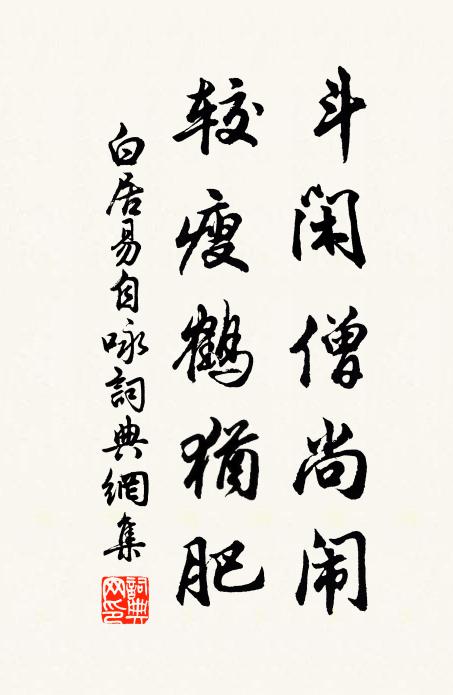 斗闲僧尚闹
较瘦鹤犹肥
白居易自咏詞典網集
詞典網印